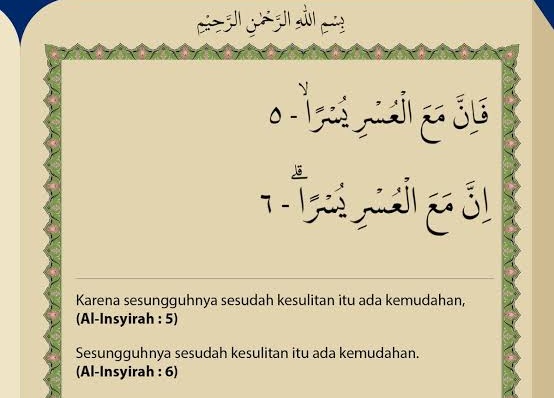 بِسْمِ اللّٰهِ الرَّحْمٰنِ الرَّحِيْمِ
فَاِنَّ مَعَ الْعُسْرِ يُسْرًاۙ - ٥
اِنَّ مَعَ الْعُسْرِ يُسْرًاۗ - ٦
Karena sesungguhnya sesudah kesulitan itu ada kemudahan,
(Al-Insyirah : 5)
Sesungguhnya sesudah kesulitan itu ada kemudahan.
(Al-Insyirah : 6)